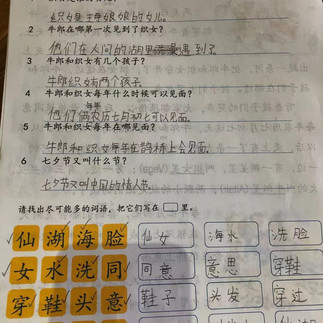 织女是王母娘娘的女儿。
2 牛郎在哪第一次见到了织女?
他们在人间的湖里遇到了
3 牛郎和织女有几个孩子?
牛郎织女有两个孩子
4 牛郎和织女每年什么时候可以见面?
每年
他们俩农历七月初七可以见面.
5 牛郎和织女每年在哪见面?
牛郎和织女每年在鹊桥上会见面.
6 七夕节又叫什么节?
七夕节又叫中国的情人节.
请找出尽可能多的词语,把它们写在 里。
仙 湖 海 脸 仙女 海水 洗脸
女 水 洗 同 同意 意思 穿鞋
穿 鞋 头 意 鞋子 头发 穿过